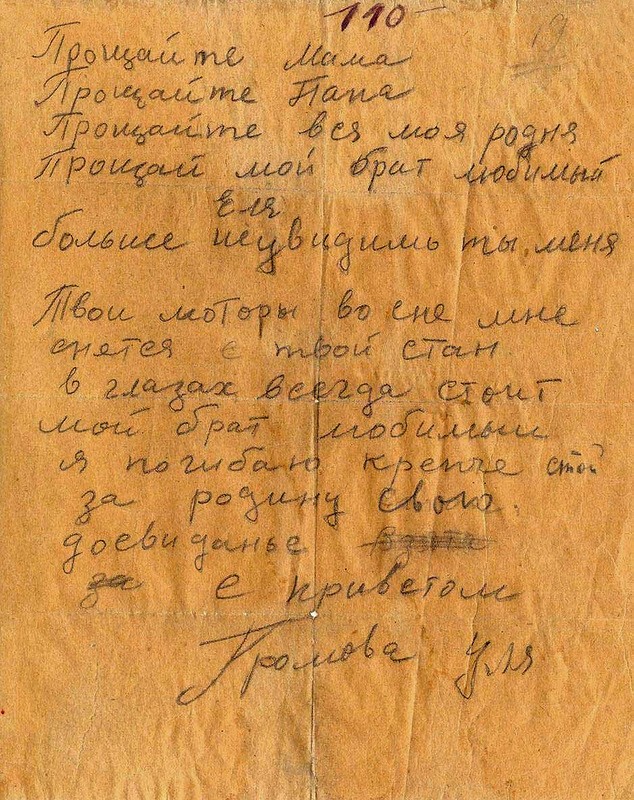 110
19
Прощайте Мама
Прощайте Папа
Прощайте вся моя родня
Прощай мой брат любимый
Еля
больше неувидишь ты меня
Твои моторы во сне мне
снется с твой стан
в глазах всегда стоит
мой брат любимыи
я погибаю крепче стой
за родину свою.
досвиданье
за
С приветом
Громова Уля